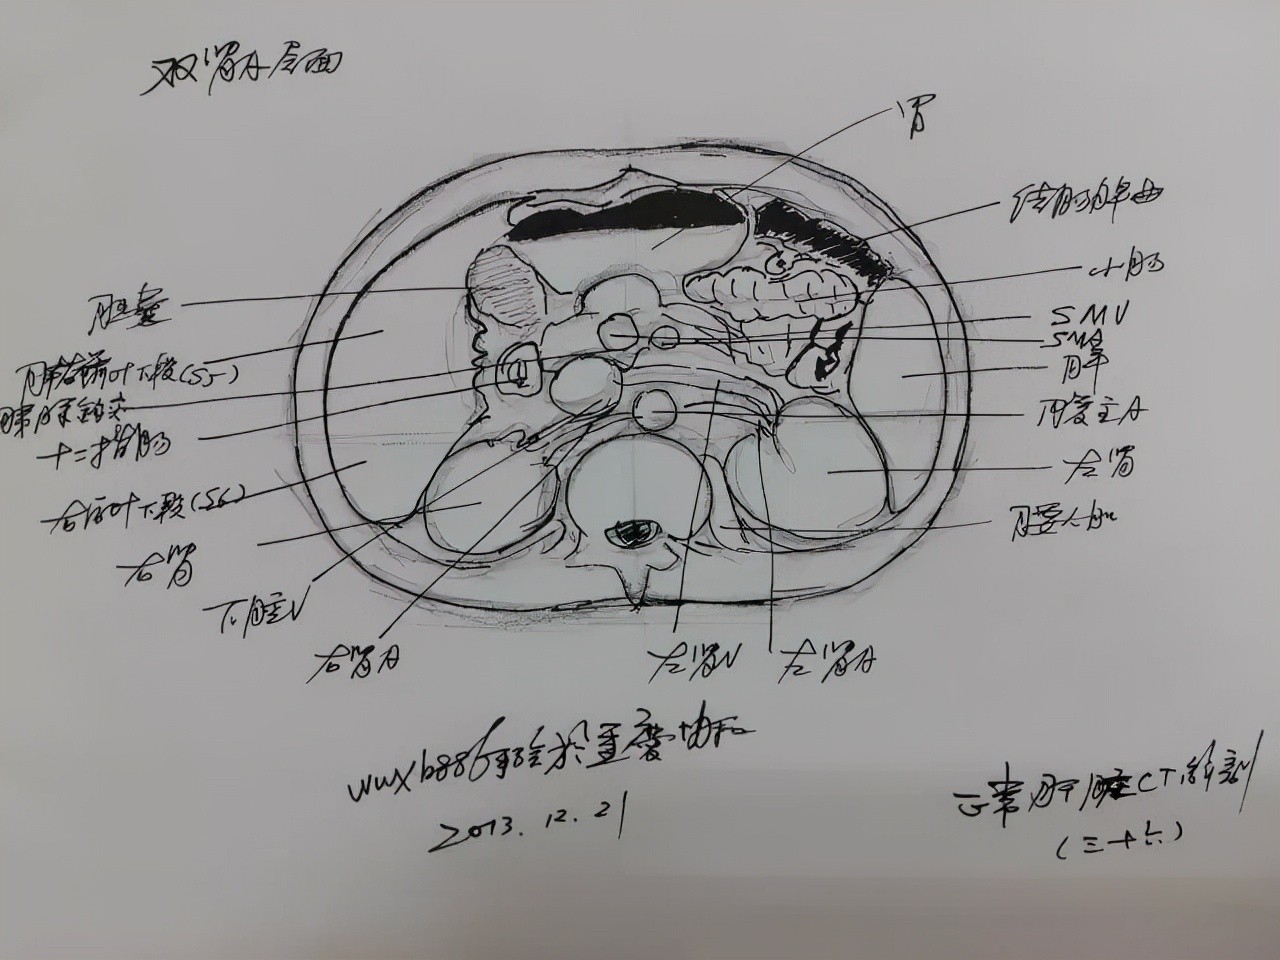 双肾A层面
胃
结肠脾曲
小肠
胆囊
SMV
SMA
肝右前叶下段(S5)
脾
胰腺钩突
腹主A
十二指肠
左肾
右后叶下段(S6)
腰大肌
右肾
下腔V
右肾A
左肾V
左肾A
wwxb886手绘于重庆协和
2013.12.21
正常腹腔CT解剖
(三十六)